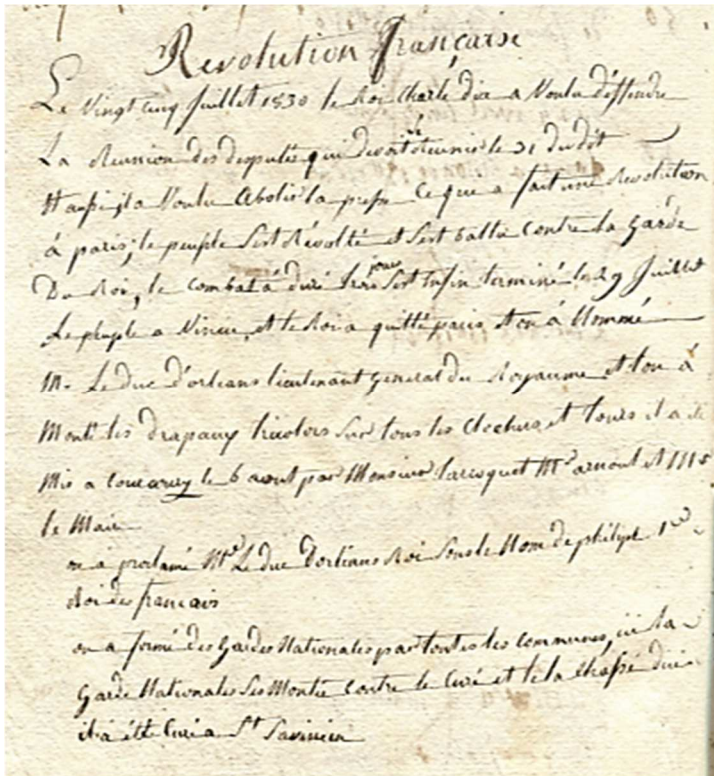 Revolution française
Le Vingt cinq Juillet 1830 le Roi Charle dix a Voulu déffendre
La Reunion des desputés qui devoit se Reunir le 31 du dit
Et aussi il a Voulu Abolir la presse Ce que a fait une Revolution
à paris, le peuple s'est Révolté et s'est battu Contre la Garde
Du Roi, le Combat a duré trois jours s'est Enfin terminé le 29 Juillet
Le peuple a Vincu, et le Roi a quitté paris et on à Nommé
Mr Le duc d'orleans lieutenant general du Royaume et l'on à
Monté les drapaux tricolors sur tous les Clochers et tours il a été
Mis a le 6 aout par Monsieur Mr arnout et Mr
le Maire
on a proclamé Mr Le duc D'orléans Roi sous le Nom de philipe 1er
Roi des français
on a formé des Gardes Nationales par toutes les Communes, ici la
Garde Nationales ses Montée Contre le Curé et la Chassé d'ici
il a été Curé a St Savinien